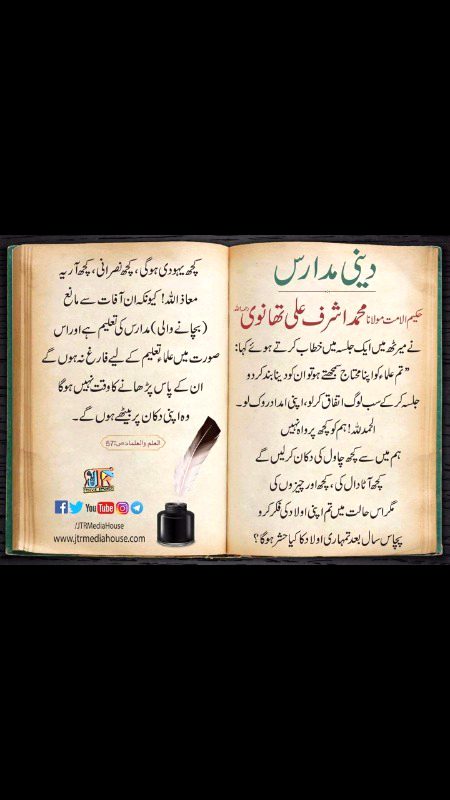 دینی مدارس
حکیم الامت مولانا محمد اشرف علی تھانوی رحمہ اللہ
نے میرٹھ میں ایک جلسہ میں خطاب کرتے ہوئے کہا:
”تم علماء کو اپنا محتاج سمجھتے ہو تو ان کو دینا بند کر دو
جلسہ کر کے سب لوگ اتفاق کر لو، اپنی امداد روک لو۔
الحمد للہ! ہم کو کچھ پرواہ نہیں
ہم میں سے کچھ چاول کی دکان کر لیں گے
کچھ آٹا دال کی، کچھ اور چیزوں کی
مگر اس حالت میں تم اپنی اولاد کی فکر کرو
پچاس سال بعد تمہاری اولاد کا کیا حشر ہوگا؟
کچھ یہودی ہوگی، کچھ نصرانی، کچھ آریہ
معاذ اللہ! کیونکہ ان آفات سے مانع
(بچانے والی) مدارس کی تعلیم ہے اور اس
صورت میں علماء تعلیم کے لیے فارغ نہ ہوں گے
ان کے پاس پڑھانے کا وقت نہیں ہوگا
وہ اپنی دکان پر بیٹھے ہوں گے۔
العلم والعلماء ص:57
You Tube
/JTRMediaHouse
www.jtrmediahouse.com